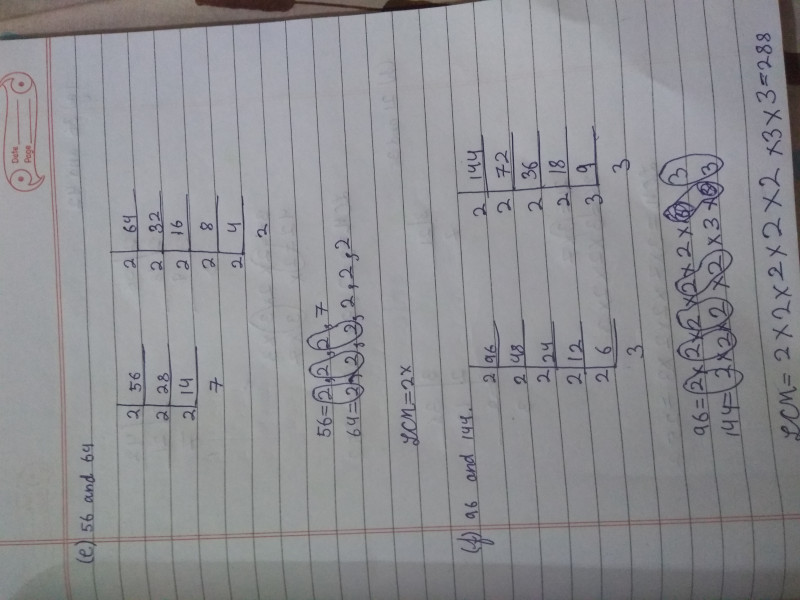 Date
Page
(e) 56 and 64
2 56 2 64
2 28 2 32
2 14 2 16
7 2 8
2 4
2
56=2,2,2,7
64=2×2,2,2,2,2
LCM=2×
(f) 96 and 144.
2 96 2 144
2 48 2 72
2 24 2 36
2 12 2 18
2 6 3 9
3 3
96=2×2×2×2×2×3
144=2×2×2×2×3×3
LCM=2×2×2×2×2×3×3=288